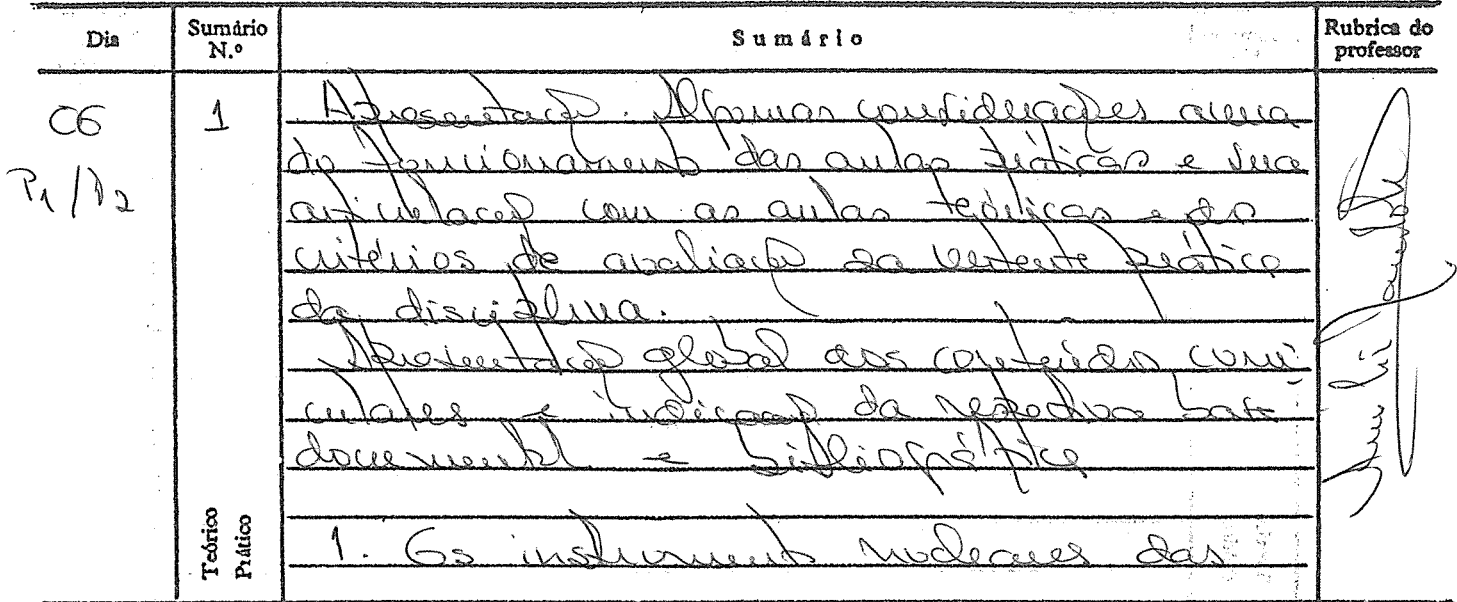 Dia
Sumário N.º
Sumário
Rubrica do professor
06
1
P1/P2
Apresentação. Algumas considerações acerca
do funcionamento das aulas práticas e sua
articulação com as aulas teóricas e os
critérios de avaliação da vertente prática
da disciplina.
Apresentação global dos conteúdos curri
culares e indicação da respectiva base
documental e bibliográfica
Teórico
Prático
1. Os instrumentos nucleares das